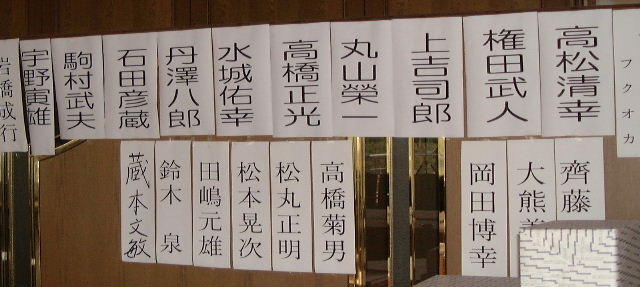 フクオカ
高松清幸
権田武人
上吉司郎
丸山榮一
高橋正光
水城佑幸
丹澤八郎
石田彦蔵
駒村武夫
宇野寅雄
岩橋成行
齊藤
大熊
岡田博幸
高橋菊男
松丸正明
松本晃次
田嶋元雄
鈴木泉
蔵本文敏